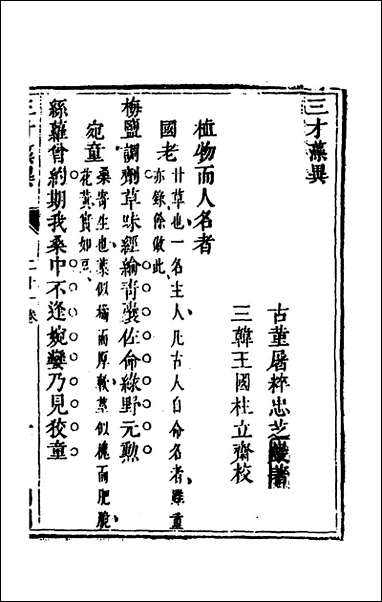 三才藻異
古董屠粹忠芝巖著
三韓王國柱立齋校
植物而人名者
國老
甘草也一名主人凡古人自命名者雖重
亦錄餘倣此
梅鹽調劑草昧經綸青囊佐命綠野元勲
宛童
桑寄生也葉似橘而厚軟莖似槐而肥脆
花黃實如豆
絲蘿曾約期我桑中不逢婉孌乃見狡童
三才藻異
二十一卷
一